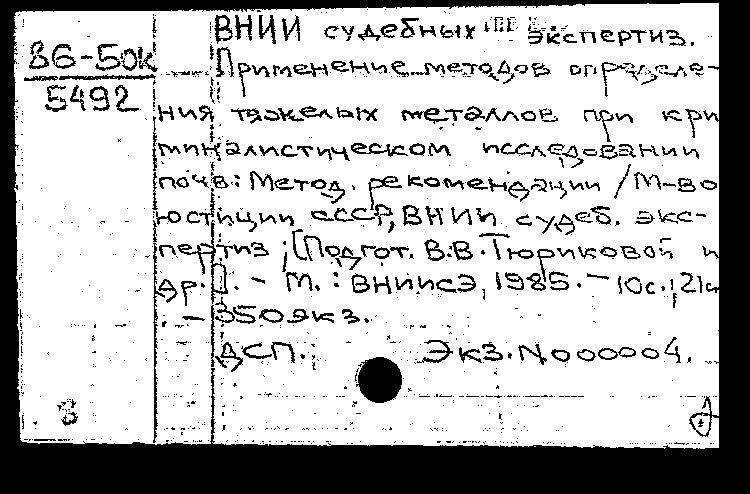 ВНИИ судебных экспертиз.
86-50к
5492
Применение методов определе-
ния тяжелых металлов при кри
миналистическом исследовании
почв: Метод. рекомендации / М-во
юстиции СССР, ВНИИ судеб. экс-
пертиз ; [Подгот. В.В. Тюриковой и
др.]. - М. : ВНИИСЭ, 1985. - 10с.; 21с
. - 350экз.
ДСП. Экз. N 000004.
8